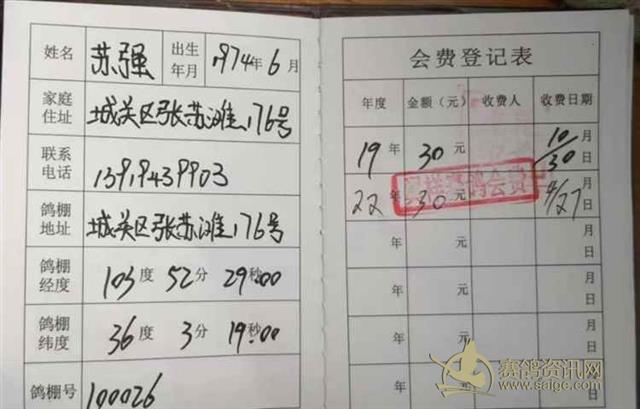 姓名 苏强 出生年月 1974年6月
家庭住址 城关区张苏滩176号
联系电话 13919439903
鸽棚地址 城关区张苏滩176号
鸽棚经度 103度52分29秒.00
鸽棚纬度 36度3分19秒.00
鸽棚号 100026
会费登记表
年度 金额（元） 收费人 收费日期
19年 30元 10月30日
22年 30元 4/27月日
年 元 月日
年 元 月日
年 元 月日
年 元 月日
赛鸽资讯网
www.saige.com